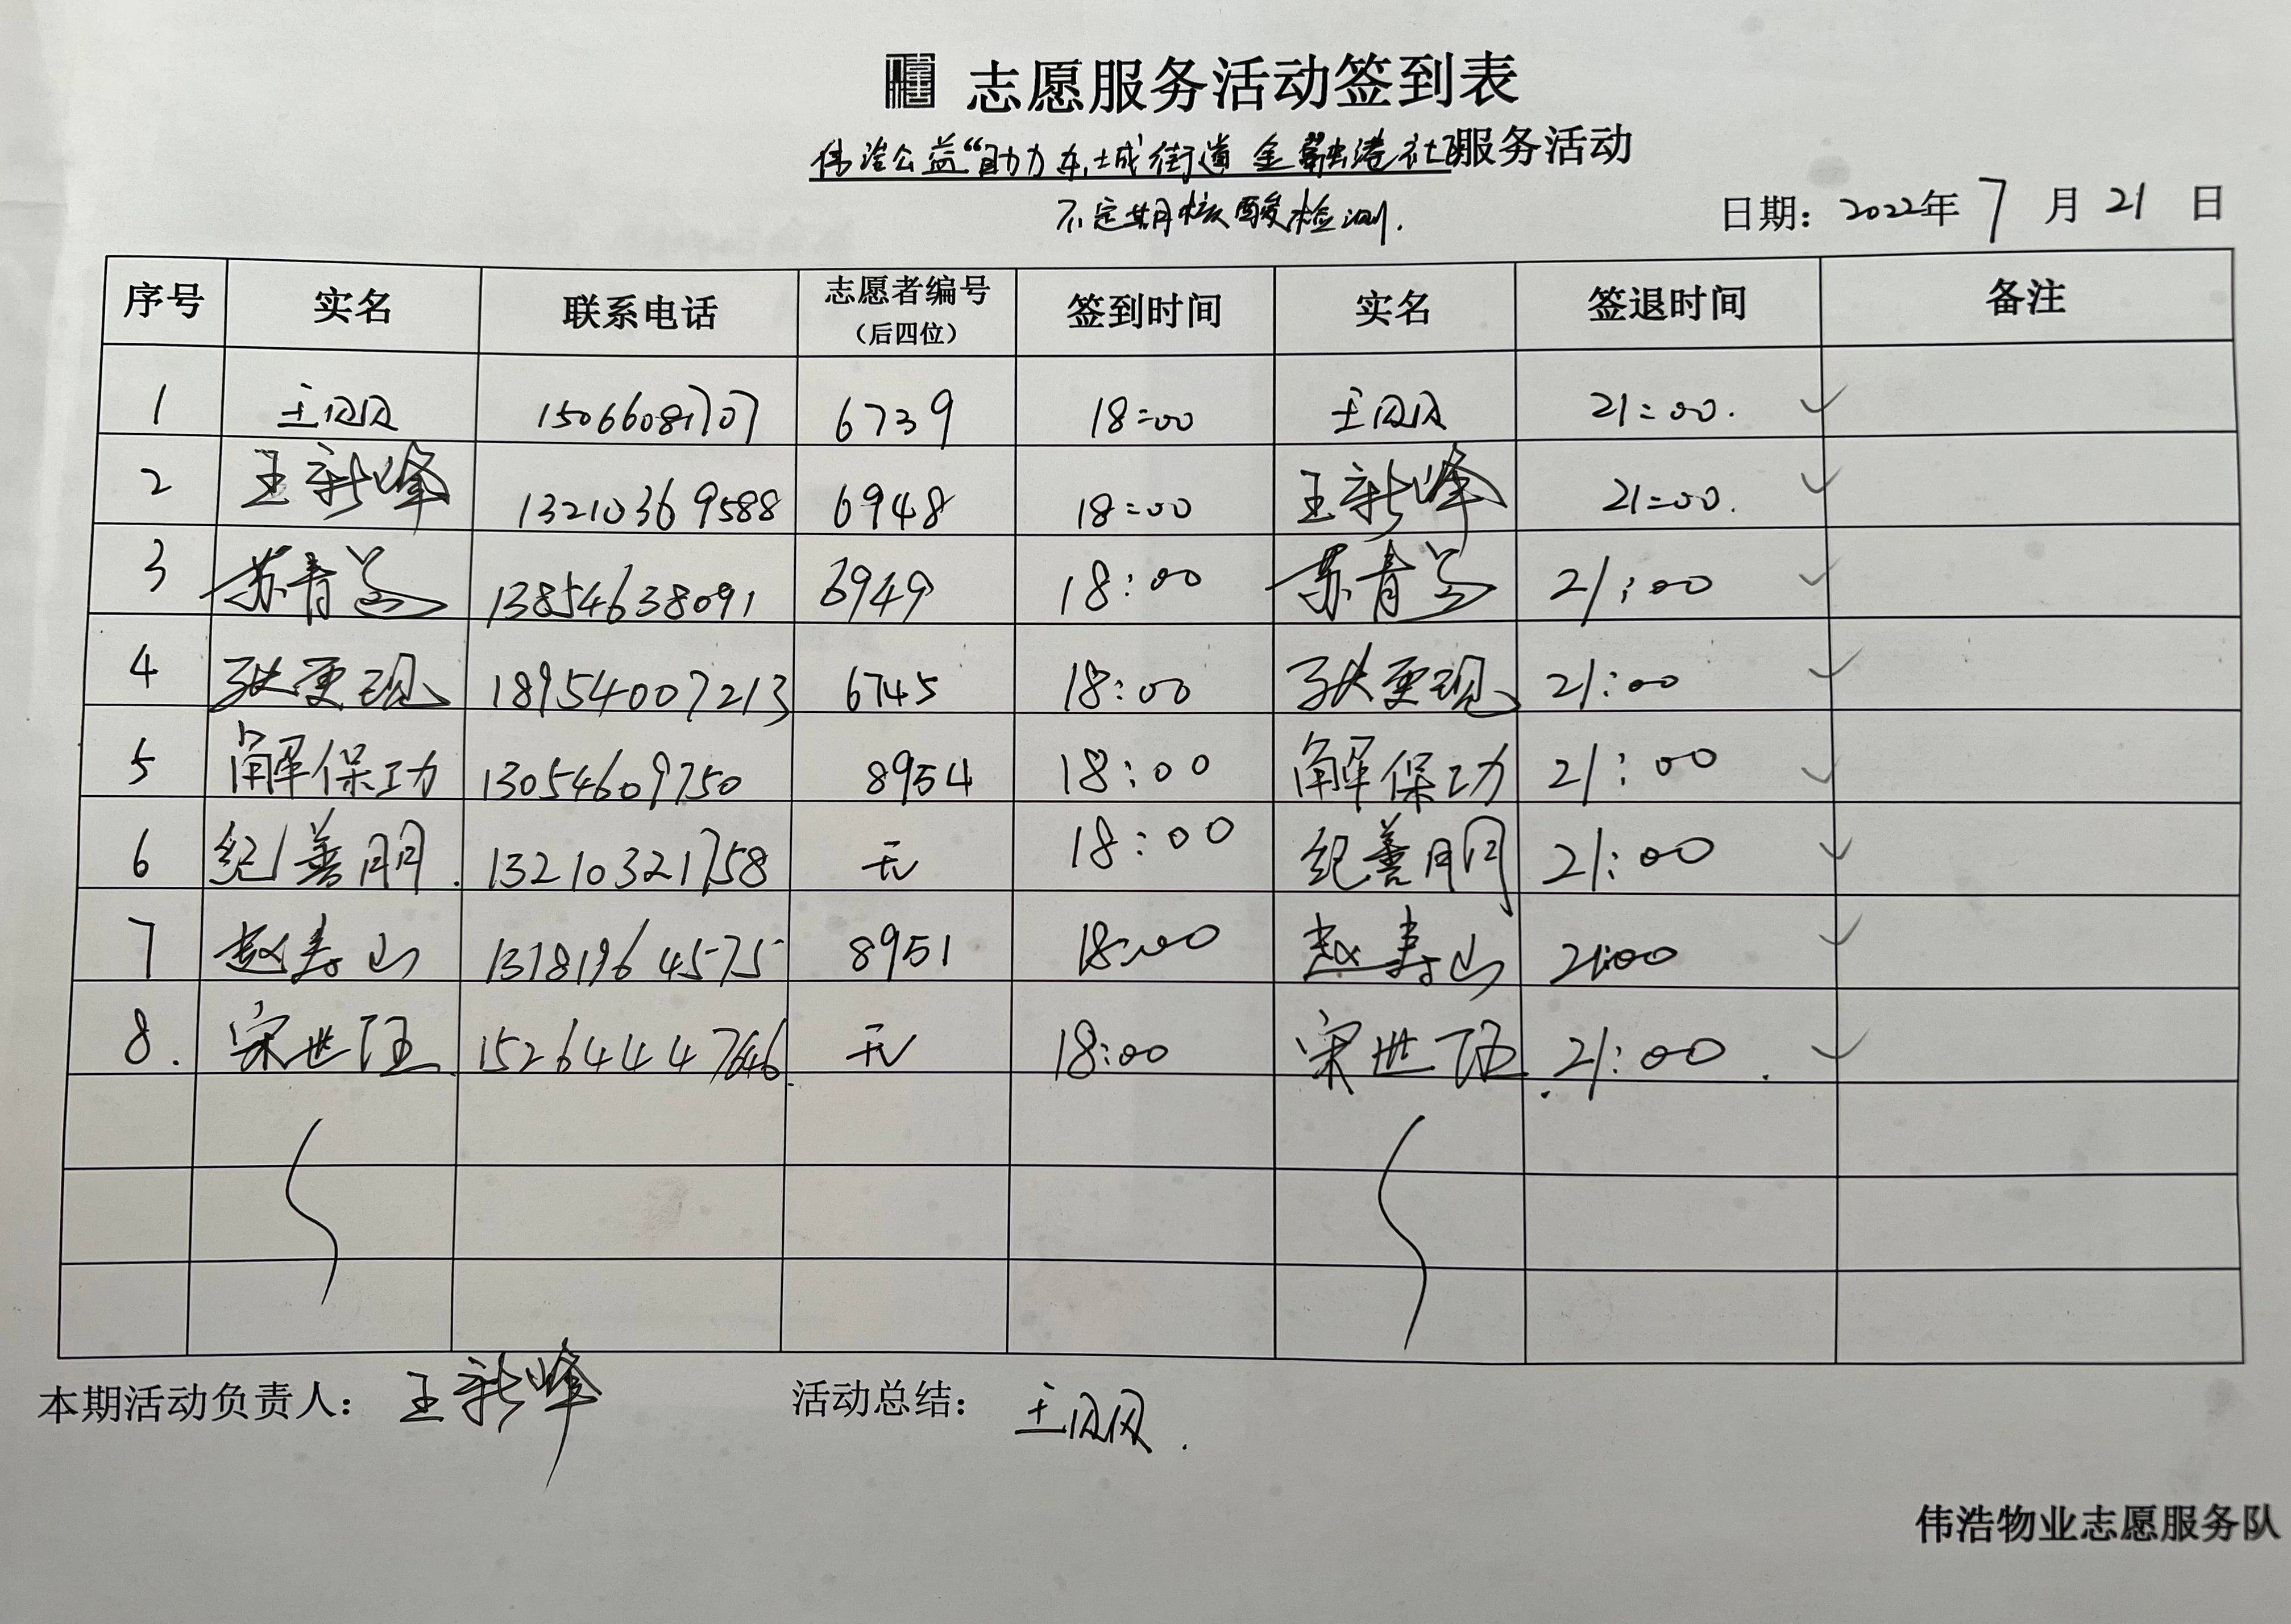 志愿服务活动签到表
伟浩公益“助力东城街道金融港社区服务活动
不定期核酸检测.
日期: 2022年 7 月 21 日
序号 实名 联系电话 志愿者编号 (后四位) 签到时间 实名 签退时间 备注
1 王风风 15066081707 6739 18:00 王风风 21:00. ✓
2 王新峰 13210369588 6948 18:00 王新峰 21:00. ✓
3 苏青兰 13854638091 6949 18:00 苏青兰 21:00 ✓
4 更现 18954007213 6745 18:00 更现 21:00 ✓
5 解保功 13054609750 8954 18:00 解保功 21:00 ✓
6 纪善朋. 13210321758 无 18:00 纪善朋 21:00 ✓
7 赵寿山 13181964575 8951 18:00 赵寿山 21:00 ✓
8. 宋世 15264447646. 无 18:00 宋世 21:00. ✓
本期活动负责人: 王新峰 活动总结: 王风风.
伟浩物业志愿服务队